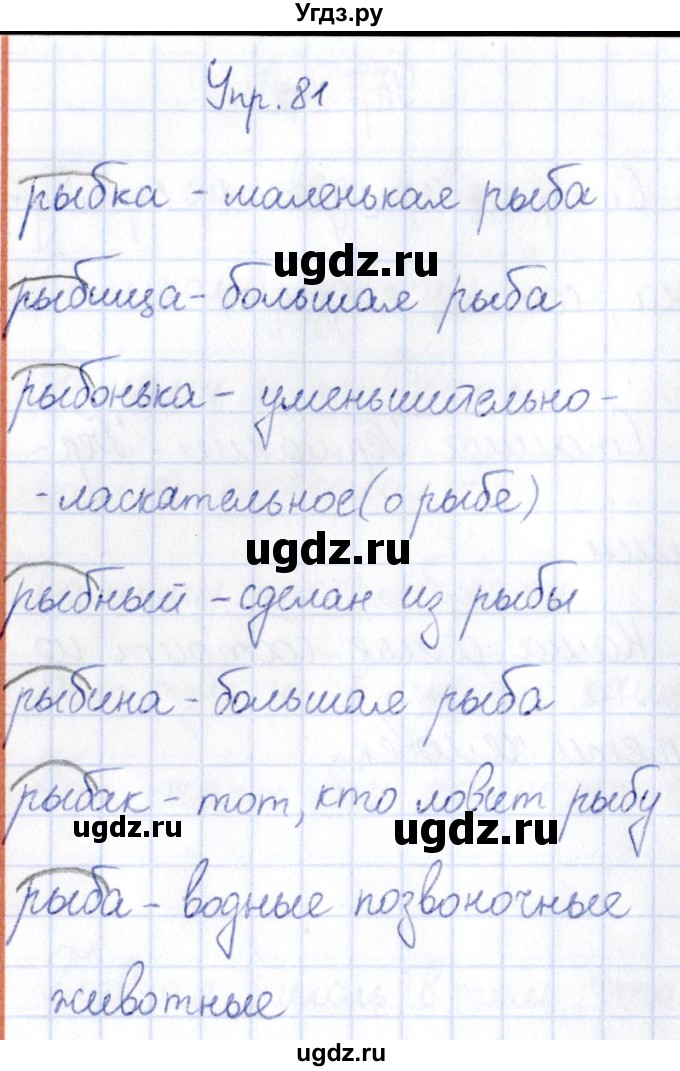 Угдз.ру
Упр. 81
рыбка - маленькая рыба
ugdz.ru
рыбища - большая рыба
рыбонька - уменьшительно-
-ласкательное (о рыбе)
ugdz.ru
рыбный - сделан из рыбы
рыбина - большая рыба
рыбак - тот, кто ловит рыбу
ugdz.ru
ugdz.ru
рыба - водные позвоночные
животные
ugdz.ru